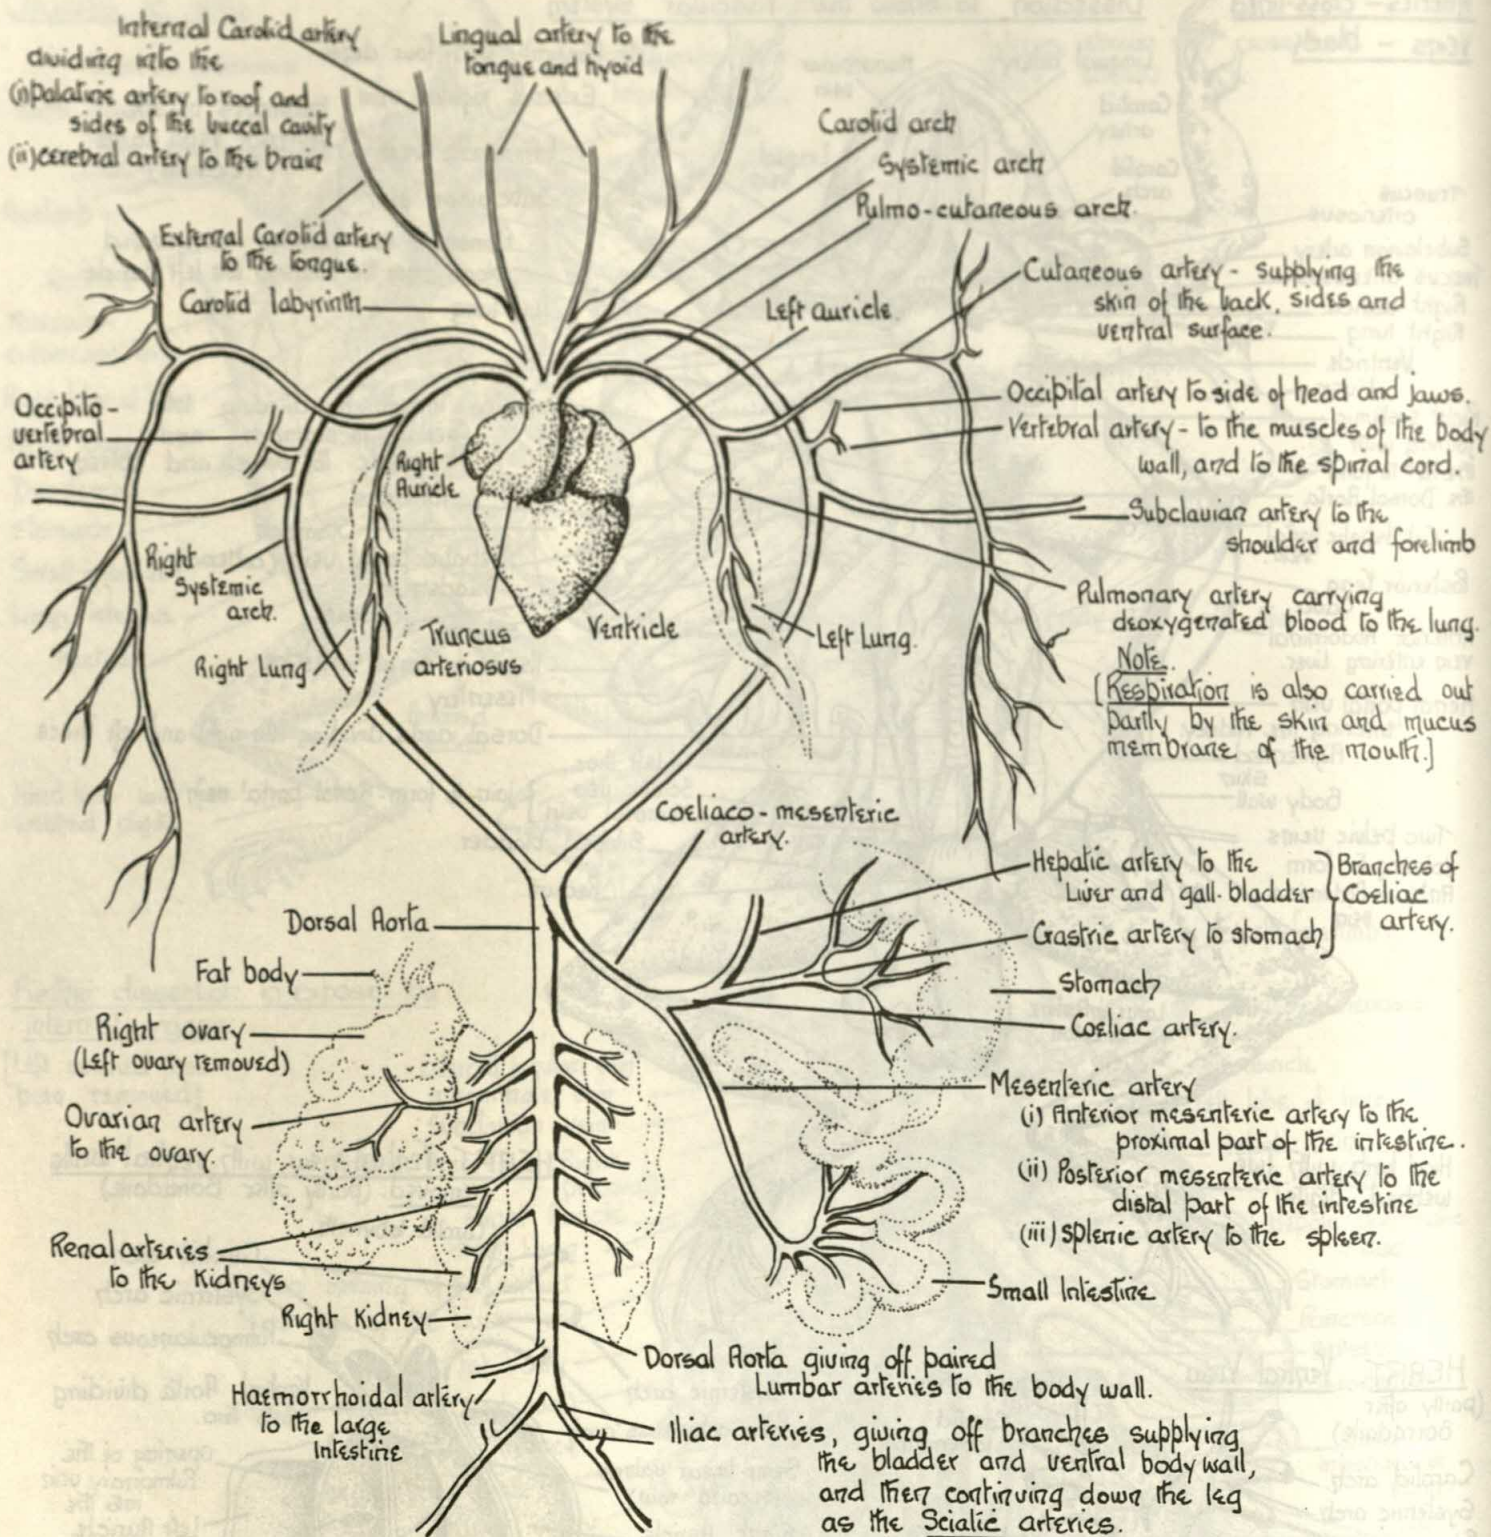 Internal Carotid artery
dividing into the
(i) palatine artery to roof and
sides of the buccal cavity
(ii) cerebral artery to the brain
Lingual artery to the
tongue and hyoid
Carotid arch
Systemic arch
Pulmo-cutaneous arch.
External Carotid artery
to the tongue.
Carotid labyrinth
Left auricle.
Cutaneous artery - supplying the
skin of the back, sides and
ventral surface.
Occipito-
vertebral
artery
Right
Auricle
Occipital artery to side of head and jaws.
Vertebral artery - to the muscles of the body
wall, and to the spinal cord.
Subclavian artery to the
shoulder and forelimb
Right
Systemic
arch.
Right Lung
Truncus
arteriosus
Ventricle
Left Lung.
Pulmonary artery carrying
deoxygenated blood to the lung.
Note.
[Respiration is also carried out
partly by the skin and mucus
membrane of the mouth.]
Coeliaco-mesenteric
artery.
Hepatic artery to the
Liver and gall-bladder
Gastric artery to stomach
Branches of
Coeliac
artery.
Dorsal Aorta
Fat body
Stomach
Right ovary
(Left ovary removed)
Coeliac artery.
Ovarian artery
to the ovary.
Mesenteric artery
(i) Anterior mesenteric artery to the
proximal part of the intestine.
(ii) Posterior mesenteric artery to the
distal part of the intestine
(iii) Splenic artery to the spleen.
Renal arteries
to the Kidneys
Small Intestine
Right Kidney
Dorsal Aorta giving off paired
Lumbar arteries to the body wall.
Haemorrhoidal artery
to the large
Intestine
Iliac arteries, giving off branches supplying
the bladder and ventral body wall,
and then continuing down the leg
as the Sciatic arteries.